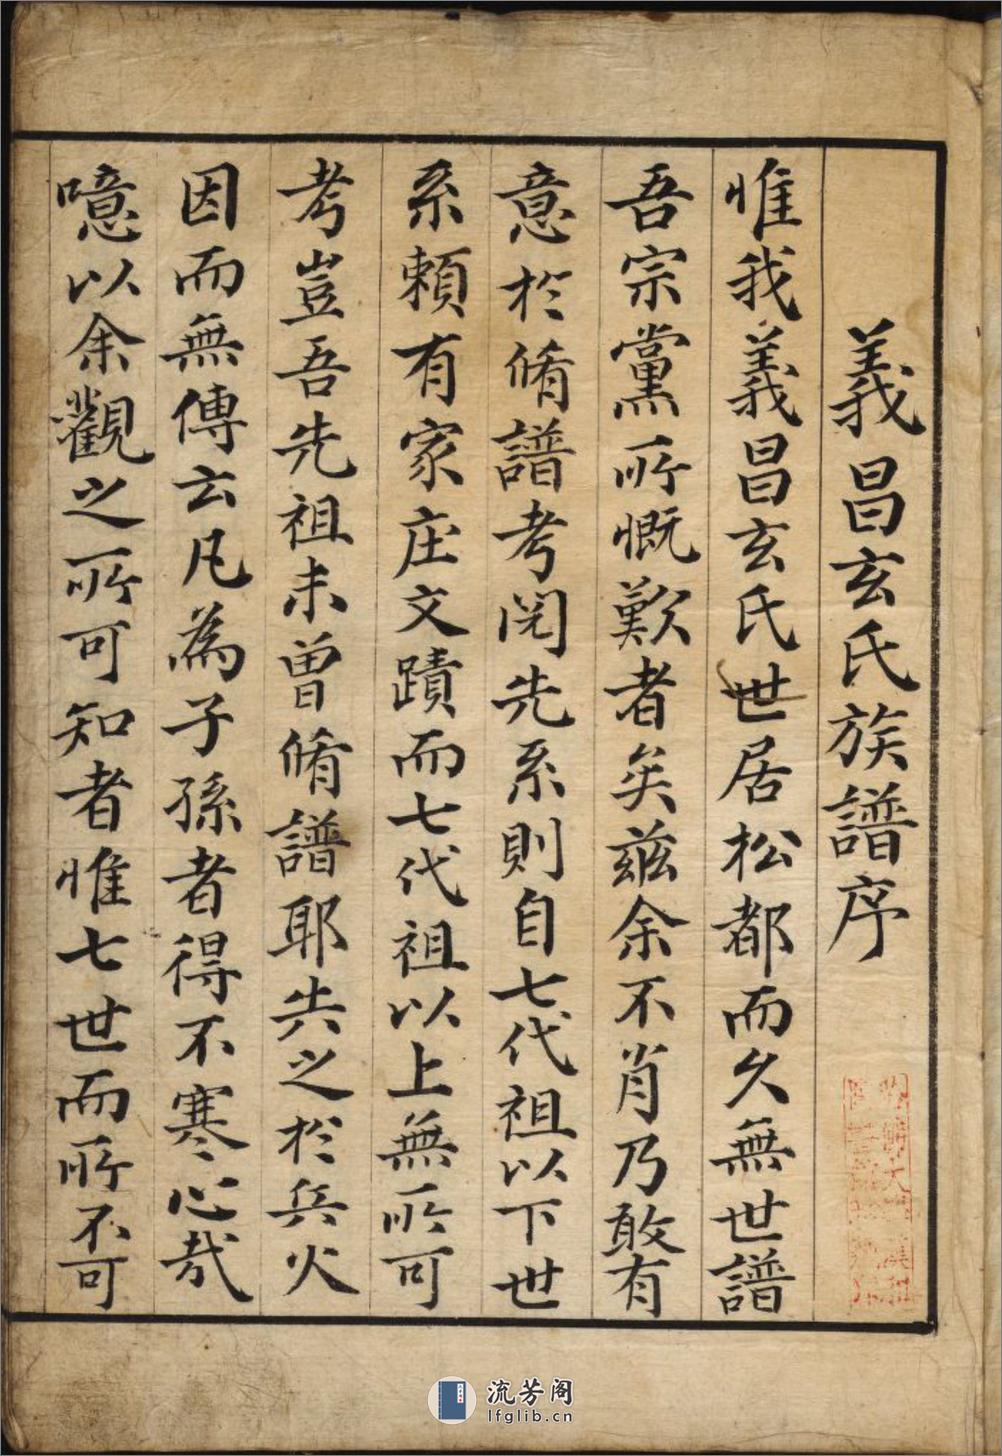 義昌玄氏族譜序
惟我義昌玄氏世居松都而久無世譜
吾宗黨所慨歎者矣玆余不肖乃敢有
意於脩譜考閱先系則自七代祖以下世
系賴有家庄文蹟而七代祖以上無所可
考豈吾先祖未曾脩譜耶失之於兵火
因而無傳云凡為子孫者得不寒心哉
噫以余觀之所可知者惟七世而所不可
流芳阁
lfglib.cn